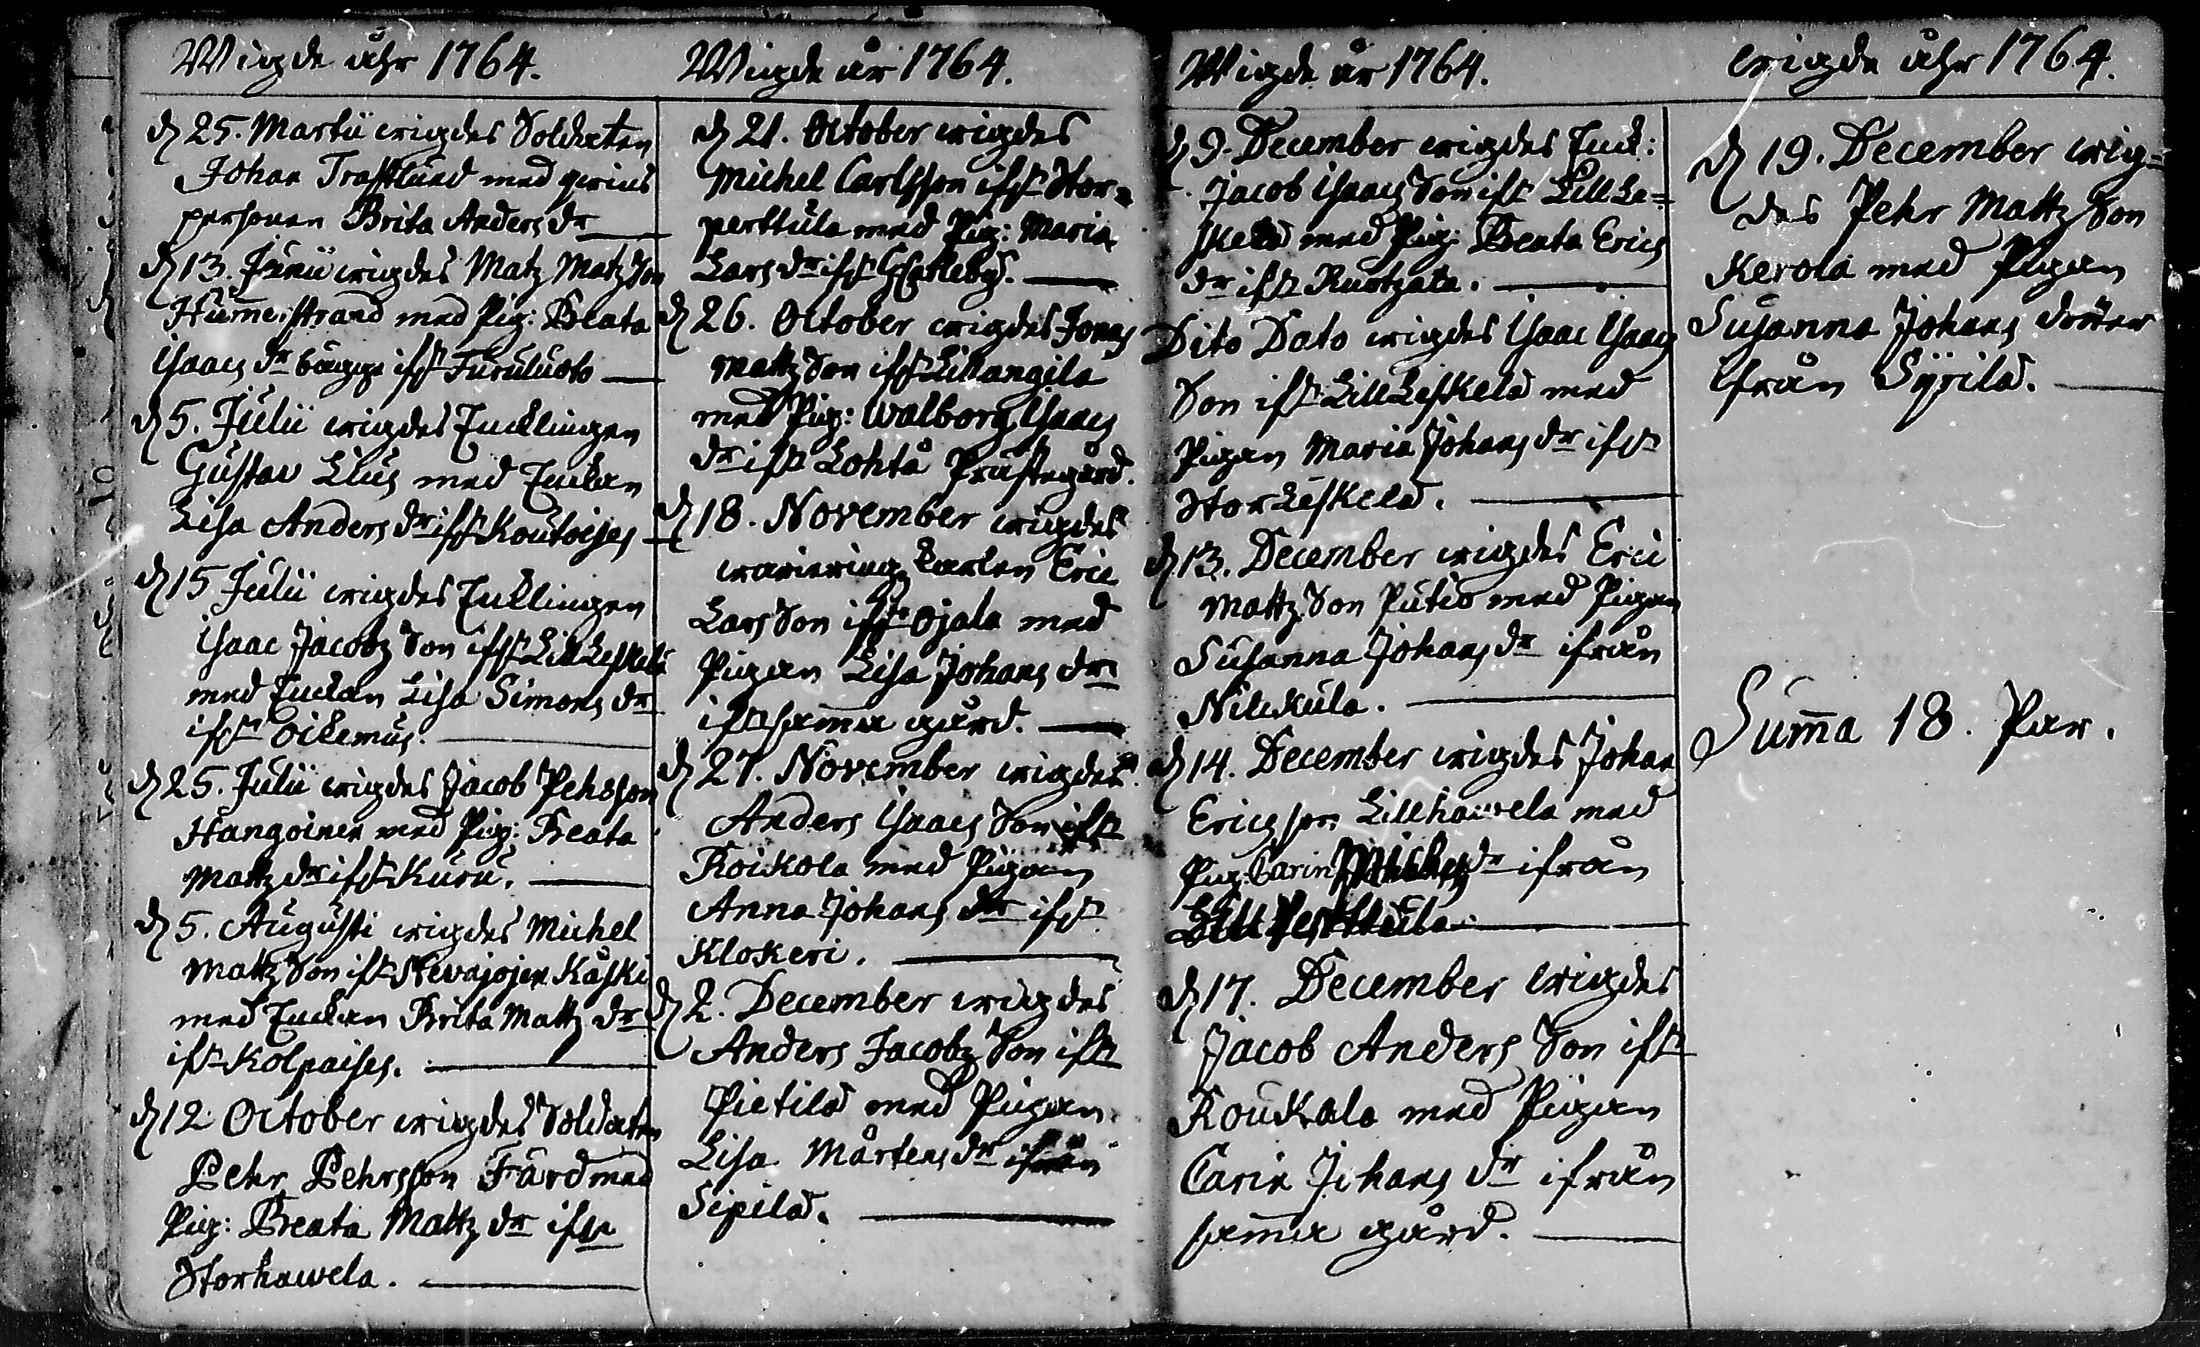 Wigde åhr 1764.
d 25. Martii wigdes Soldaten
Johan Trafflund med qwins
personen Brita Anders dr
d 13. Junii wigdes Matz Matz Son
Hummerstrand med Pig: Beata
Isaacs dr bägge ifrn Furuluoto
d 5. Julii wigdes Encklingen
Gustav Lius med Enckan
Lisa Anders dr ifrn Koutoises
d 15 Julii wigdes Encklingen
Isaac Jacobz Son ifrn Lill Leskelä
med Enckan Lisa Simons dr
ifrn Oikemus.
d 25. Julii wigdes Jacob Pehrsson
Hangoinen med Pig: Beata
Mattz dr ifrn Kuru.
d 5. Augusti wigdes Michel
Mattz Son ifrn Nevajojen Kåski
med Enckan Brita Mattz dr
ifrn Kolpaises.
d 12 October wigdes Soldaten
Pehr Pehrsson Färd med
Pig: Beata Mattz dr ifrn
Storhawela.
Wigde år 1764.
d 21. October wigdes
Michel Carlsson ifrn Stor=
perttula med Pig: Maria
Lars dr ifrn
d 26. October wigdes Jonas
Mattz Son ifrn Lillangila
med Pig: Walborg Isaacs
dr ifrn Lohtå Prästegård.
d 18. November wigdes
wariering karlen Eric
Lars Son ifrn Ojala med
Pigan Lisa Johans dr
ifrn samma gård.
d 27. November wigdes
Anders Isaacs Son ifrn
Roikola med Pigan
Anna Johans dr ifrn
Klokeri.
d 2. December wigdes
Anders Jacobz Son ifrn
Pietilä med Pigan
Lisa Mårtens dr ifrån
Sipilä.
Wigde år 1764.
d 9. December wigdes Enck:
Jacob Isaacs Son ifrn Lill Le=
skelä med Pig: Beata Erics
dr ifrn Ruotzala.
Dito Dato wigdes Isaac Isaacs
Son ifrn Lill Leskelä med
Pigan Maria Johans dr ifrn
Stor Leskelä.
d 13. December wigdes Eric
Mattz Son Putio med Pigan
Susanna Johans dr ifrån
Nilckula.
d 14. December wigdes Johan
Ericsson Lillhawela med
Pig: Carin Michels dr ifrån
Lill Perttula.
d 17. December wigdes
Jacob Anders Son ifrn
Roukala med Pigan
Carin Johans dr ifrån
samma gård.
wigde åhr 1764.
d 19. December wig=
des Pehr Mattz Son
Kerola med Pigan
Susanna Johans dotter
ifrån Syrilä.
Summa 18. Par.